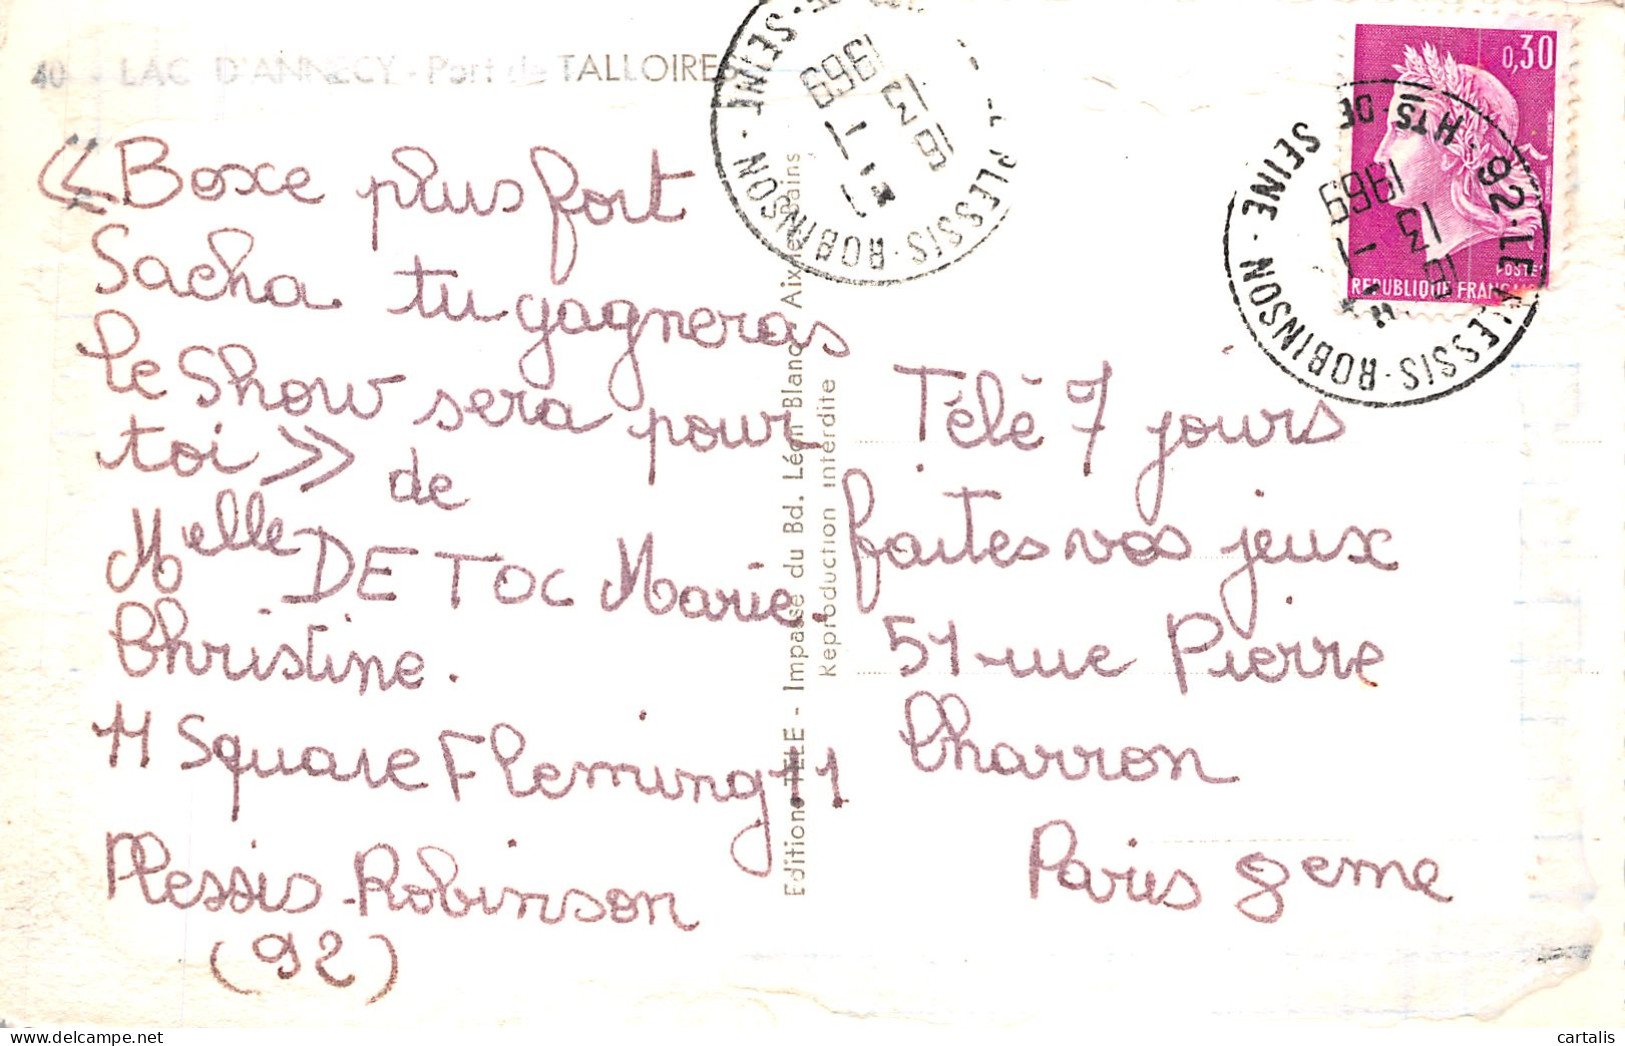 40 - LAC D'ANNECY - Port de TALLOIRES
« Boxe plus fort
Sacha tu gagneras
le Show sera pour
toi » de
Melle DE TOC Marie-
Christine.
11 Square Fleming 11
Plessis-Robinson
(92)
Editions TELE - Impasse du Bd. Léon Blanc Aix-les-Bains
Reproduction interdite
SEINE
92·LE PLESSIS-ROBINSON
HTS DE SEINE
13 - 1
1969
0,30
POSTES
REPUBLIQUE FRANÇAISE
Télé 7 jours
faites vos jeux
51 rue Pierre
Charron
Paris 8eme
cartalis